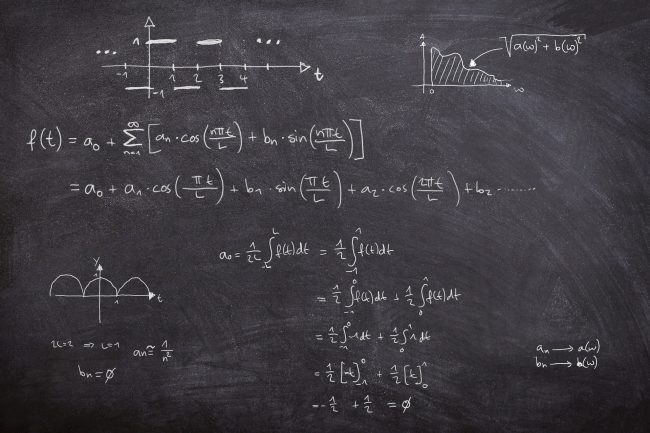 1
-1 1 2 3 4 t
-1
A √(a(ω)² + b(ω)²)
0 ω
f(t) = a₀ + ∑ₙ₌₁^∞ [aₙ · cos(nπt/L) + bₙ · sin(nπt/L)]
= a₀ + a₁ · cos(πt/L) + b₁ · sin(πt/L) + a₂ · cos(2πt/L) + b₂ ........
a₀ = 1/2L ∫₋L^L f(t)dt = 1/2 ∫₋₁^1 f(t)dt
= 1/2 ∫₋₁^0 f(t)dt + 1/2 ∫₀^1 f(t)dt
= 1/2 ∫₋₁^0 -1dt + 1/2 ∫₀^1 1dt
= 1/2 [-t]₋₁^0 + 1/2 [t]₀^1
= -1/2 + 1/2 = ∅
y
1
1 t
2L=2 ⇒ L=1 aₙ ≈ 1/n²
bₙ = ∅
aₙ → a(ω)
bₙ → b(ω)